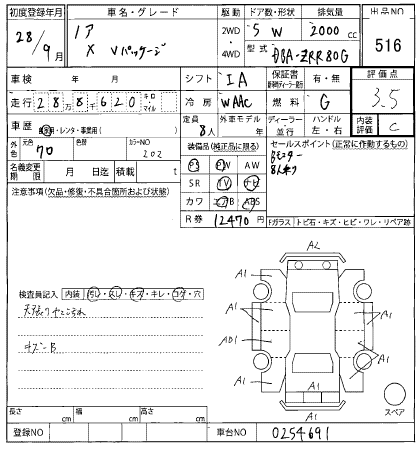 初度登録年月 車名・グレード 駆動 ドア数・形状 排気量 出品NO
28年 9月 ノア 2WD 5 W 2000 cc 516
X Vパッケージ 4WD 型式 DBA-ZRR80G
車検 年 月 シフト IA 保証書 有・無 評価点
走行 28万8千620 キロ・マイル 冷房 WAAC 燃料 G 3.5
車歴 自家用・レンタ・事業用( ) 定員 8人 外車モデル 年 ディーラー 並行 ハンドル 左・右 内装評価 C
外色 元色 クロ 色替 カラーNO 202 装備品(純正品に限る) セールスポイント(正常に作動するもの)
PS PW AW
8人乗り
名義変更期限 月 日迄 積載量 t SR TV ナビ
注意事項(欠品・修復・不具合箇所および状態) カワ エアB ABS
R券 12470円 Fガラス トビ石・キズ・ヒビ・ワレ・リペア跡
AL
A1 A1
A1 A1
検査員記入 内装 汚れ・スレ・キズ・キレ・コゲ・穴
AD1 A1
キズ-B
A1 A1 A1
A1
スペア
長さ cm 幅 cm 高さ cm
登録NO 車台NO 0254691